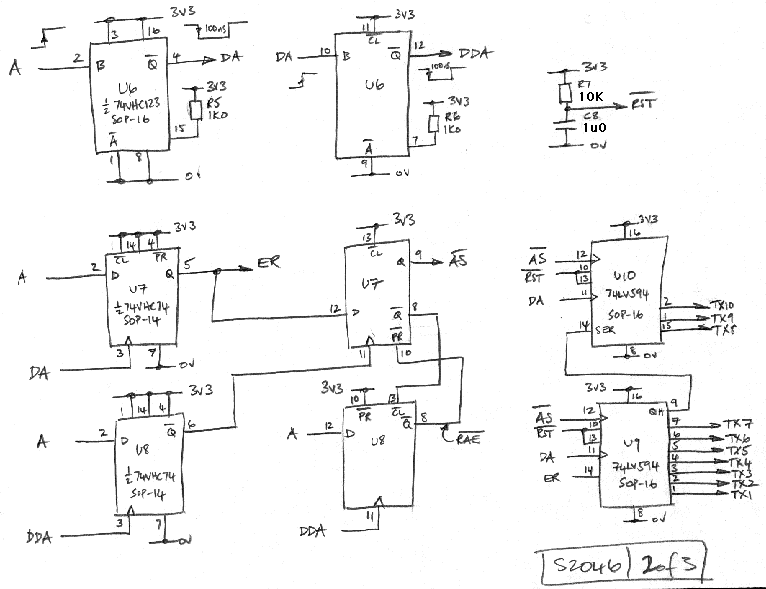 3V3
3
16
A
2
B
Q
4
DA
100nS
U6
½ 74VHC123
SOP-16
3V3
R5
1K0
15
A
1
8
0V
3V3
11
CL
DA
10
B
Q
12
DDA
100nS
U6
3V3
R6
1K0
7
A
9
0V
3V3
R7
10K
RST
C8
1u0
0V
3V3
14
4
CL
PR
A
2
D
Q
5
ER
U7
½ 74VHC74
SOP-14
DA
3
7
0V
3V3
13
CL
Q
9
AS
U7
Q
8
12
D
PR
11
10
3V3
16
AS
12
U10
RST
10
13
74LV594
DA
11
SOP-16
14
SER
2
TX10
1
TX9
15
TX8
8
0V
3V3
1
14
4
A
2
D
Q
6
U8
½ 74VHC74
SOP-14
DDA
3
7
0V
3V3
10
13
PR
CL
A
12
D
Q
8
U8
RAE
DDA
11
3V3
16
QH
9
AS
12
RST
10
13
U9
DA
11
74LV594
ER
14
SOP-16
7
TX7
6
TX6
5
TX5
4
TX4
3
TX3
2
TX2
1
TX1
8
0V
S2046 2of3